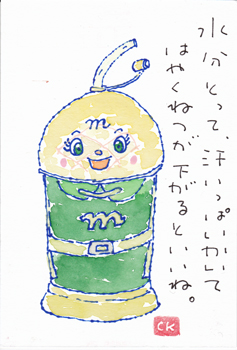 水分とって、汗いっぱいかいて
はやくねつが下がるといいね。
m
m
CK